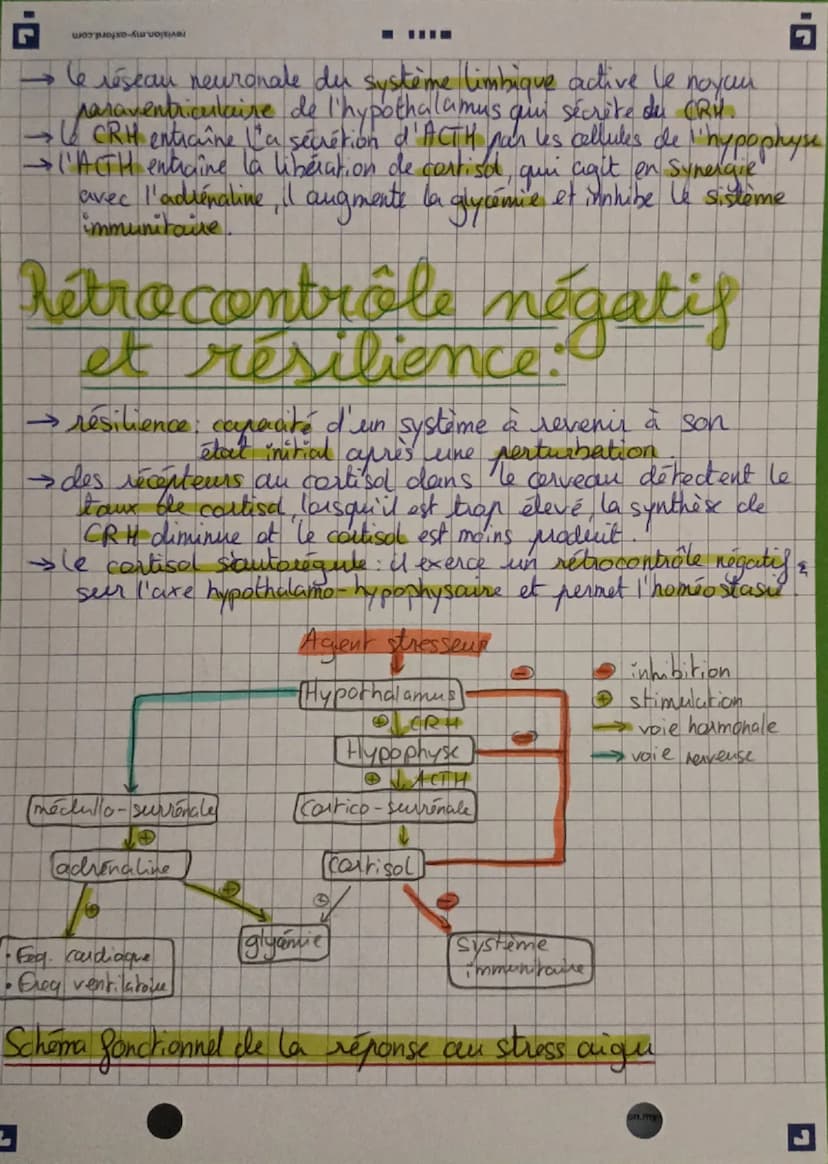 revision.my-oxford.com
→ le réseau neuronale du système limbique active le noyau
paraventriculaire de l'hypothalamus qui sécrète du CRH.
→ le CRH entraîne la sécrétion d'ACTH par les cellules de l'hypophyse
→ l'ACTH entraîne la libération de cortisol, qui agit en synergie
avec l'adrénaline, il augmente la glycémie et inhibe le sistème
immunitaire.
Rétrocontrôle négatif
et résilience:
→ résilience: capacité d'un système à revenir à son
état initial après une perturbation.
→ des récepteurs au cortisol dans le cerveau détectent le
taux de cortisol, lorsqu'il est trop élevé, la synthèse de
CRH diminue et le cortisol est moins produit.
→ le cortisol s'autorégule: il exerce un rétrocontrôle négatif
sur l'axe hypothalamo-hypophysaire et permet l'homéostasie.
Agent stresseur
Hypothalamus
⊖ inhibition
⊕ stimulation
⊕ CRH
⊖
→ voie hormonale
Hypophyse
⊖
→ voie nerveuse
⊕ ACTH
médullo-surrénale
cortico-surrénale
⊕
adrénaline
cortisol
⊕
⊕
⊕
⊖
glyémie
système
immunitaire
• Freq. cardiaque
• Freq ventilatoire
Schéma fonctionnel de la réponse au stress aigu
on.my